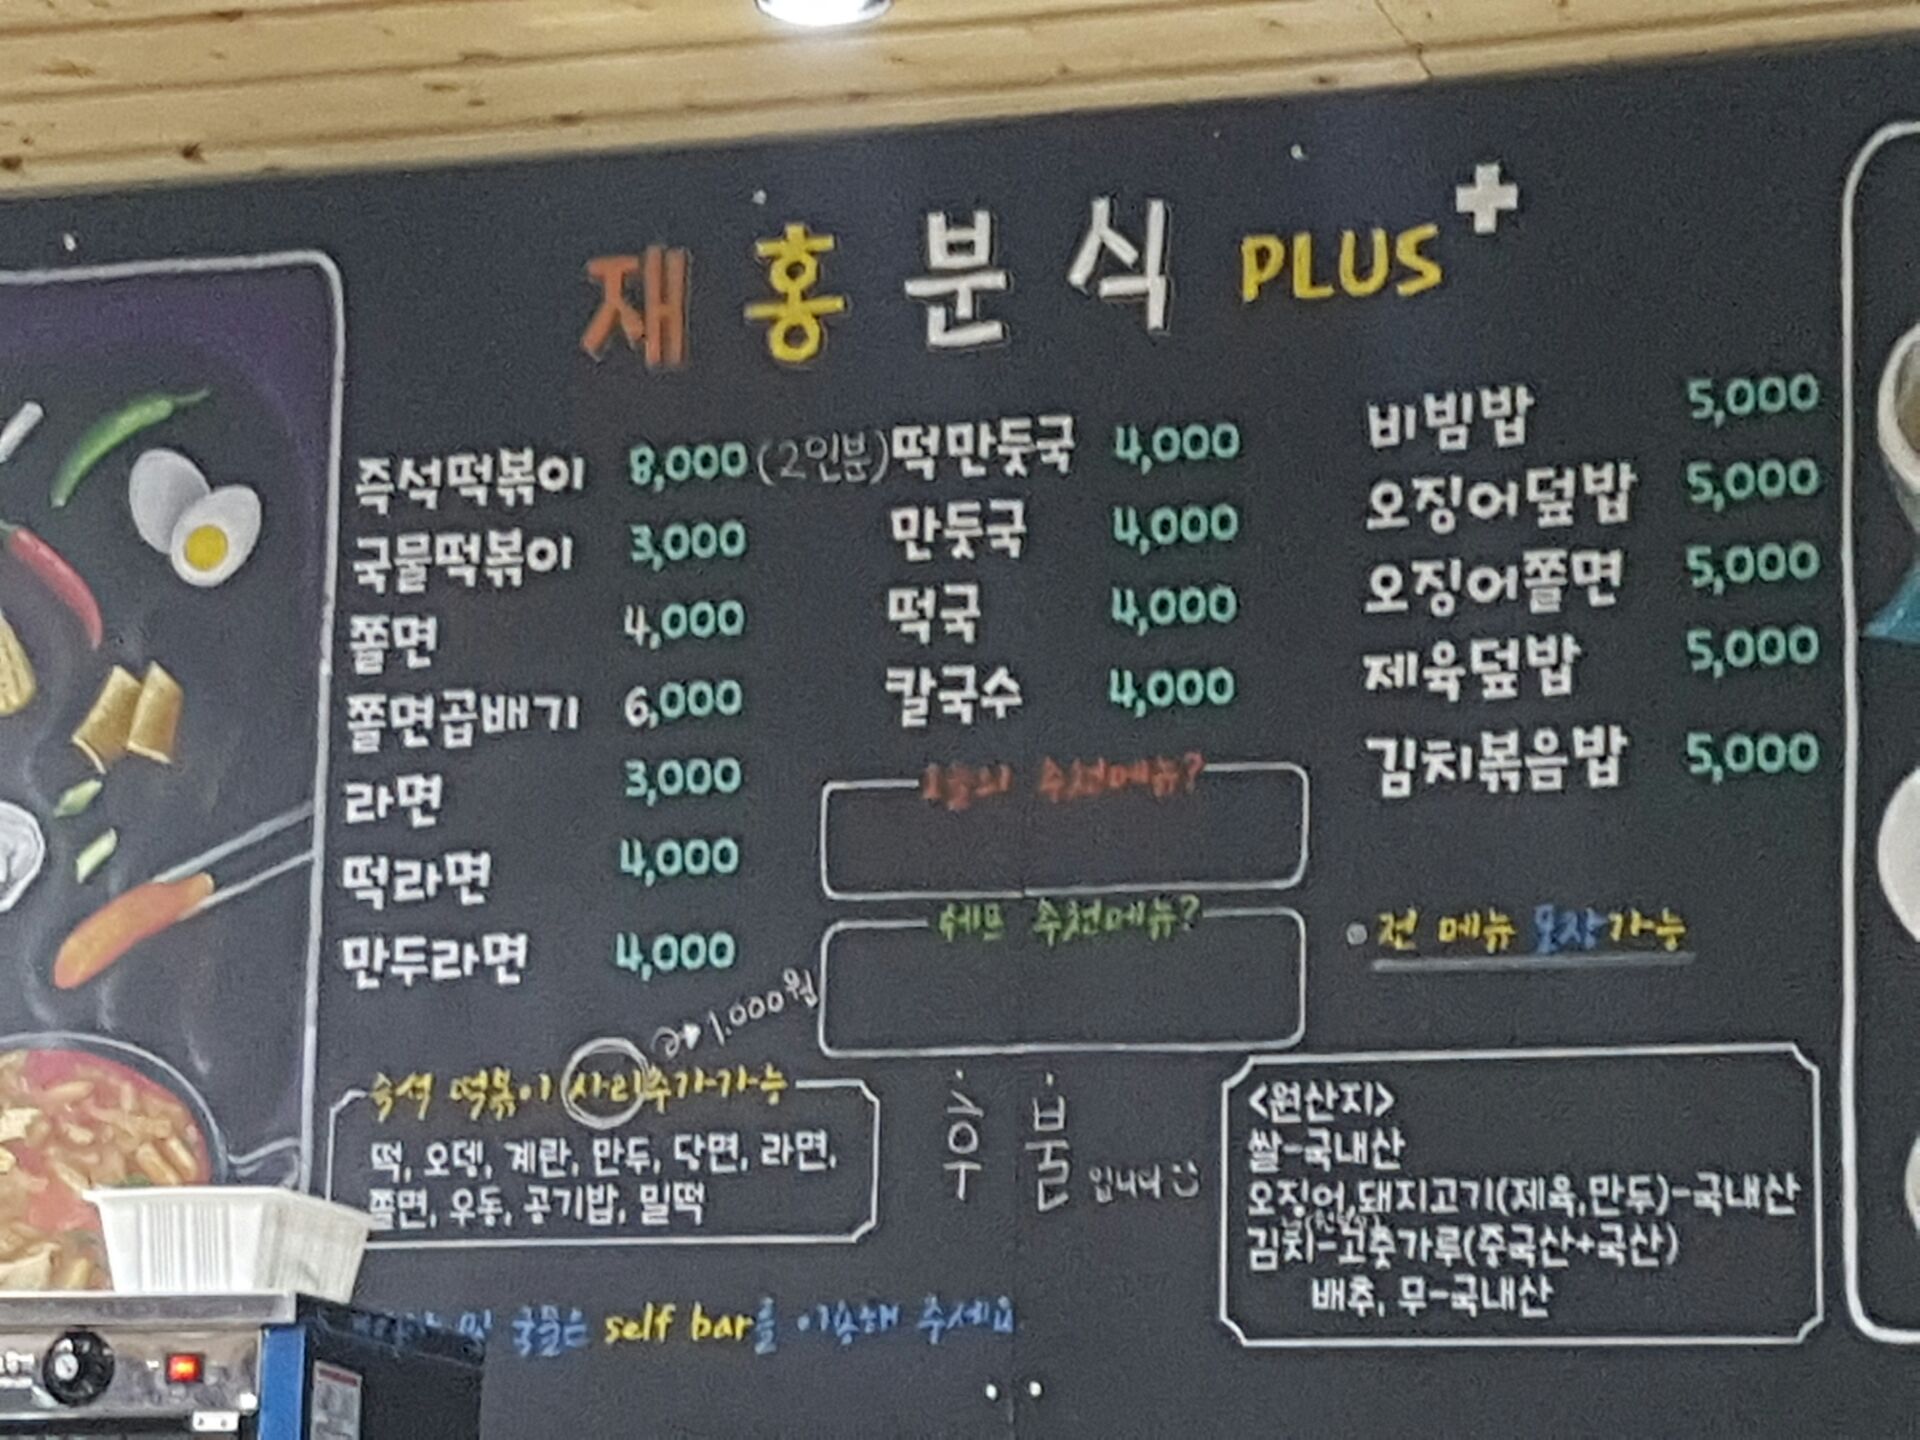 재홍분식 PLUS+
즉석떡볶이 8,000 (2인분)
국물떡볶이 3,000
쫄면 4,000
쫄면곱배기 6,000
라면 3,000
떡라면 4,000
만두라면 4,000
떡만둣국 4,000
만둣국 4,000
떡국 4,000
칼국수 4,000
비빔밥 5,000
오징어덮밥 5,000
오징어쫄면 5,000
제육덮밥 5,000
김치볶음밥 5,000
오늘의 추천메뉴?
쉐프 추천메뉴?
전 메뉴 포장가능
1.000원
숙석 떡볶이 사리추가가능
떡, 오뎅, 계란, 만두, 당면, 라면,
쫄면, 우동, 공기밥, 밀떡
입니다
<원산지>
쌀-국내산
오징어,돼지고기(제육,만두)-국내산
김치-고춧가루(중국산+국산)
배추, 무-국내산
및 국물은 self bar를 이용해 주세요